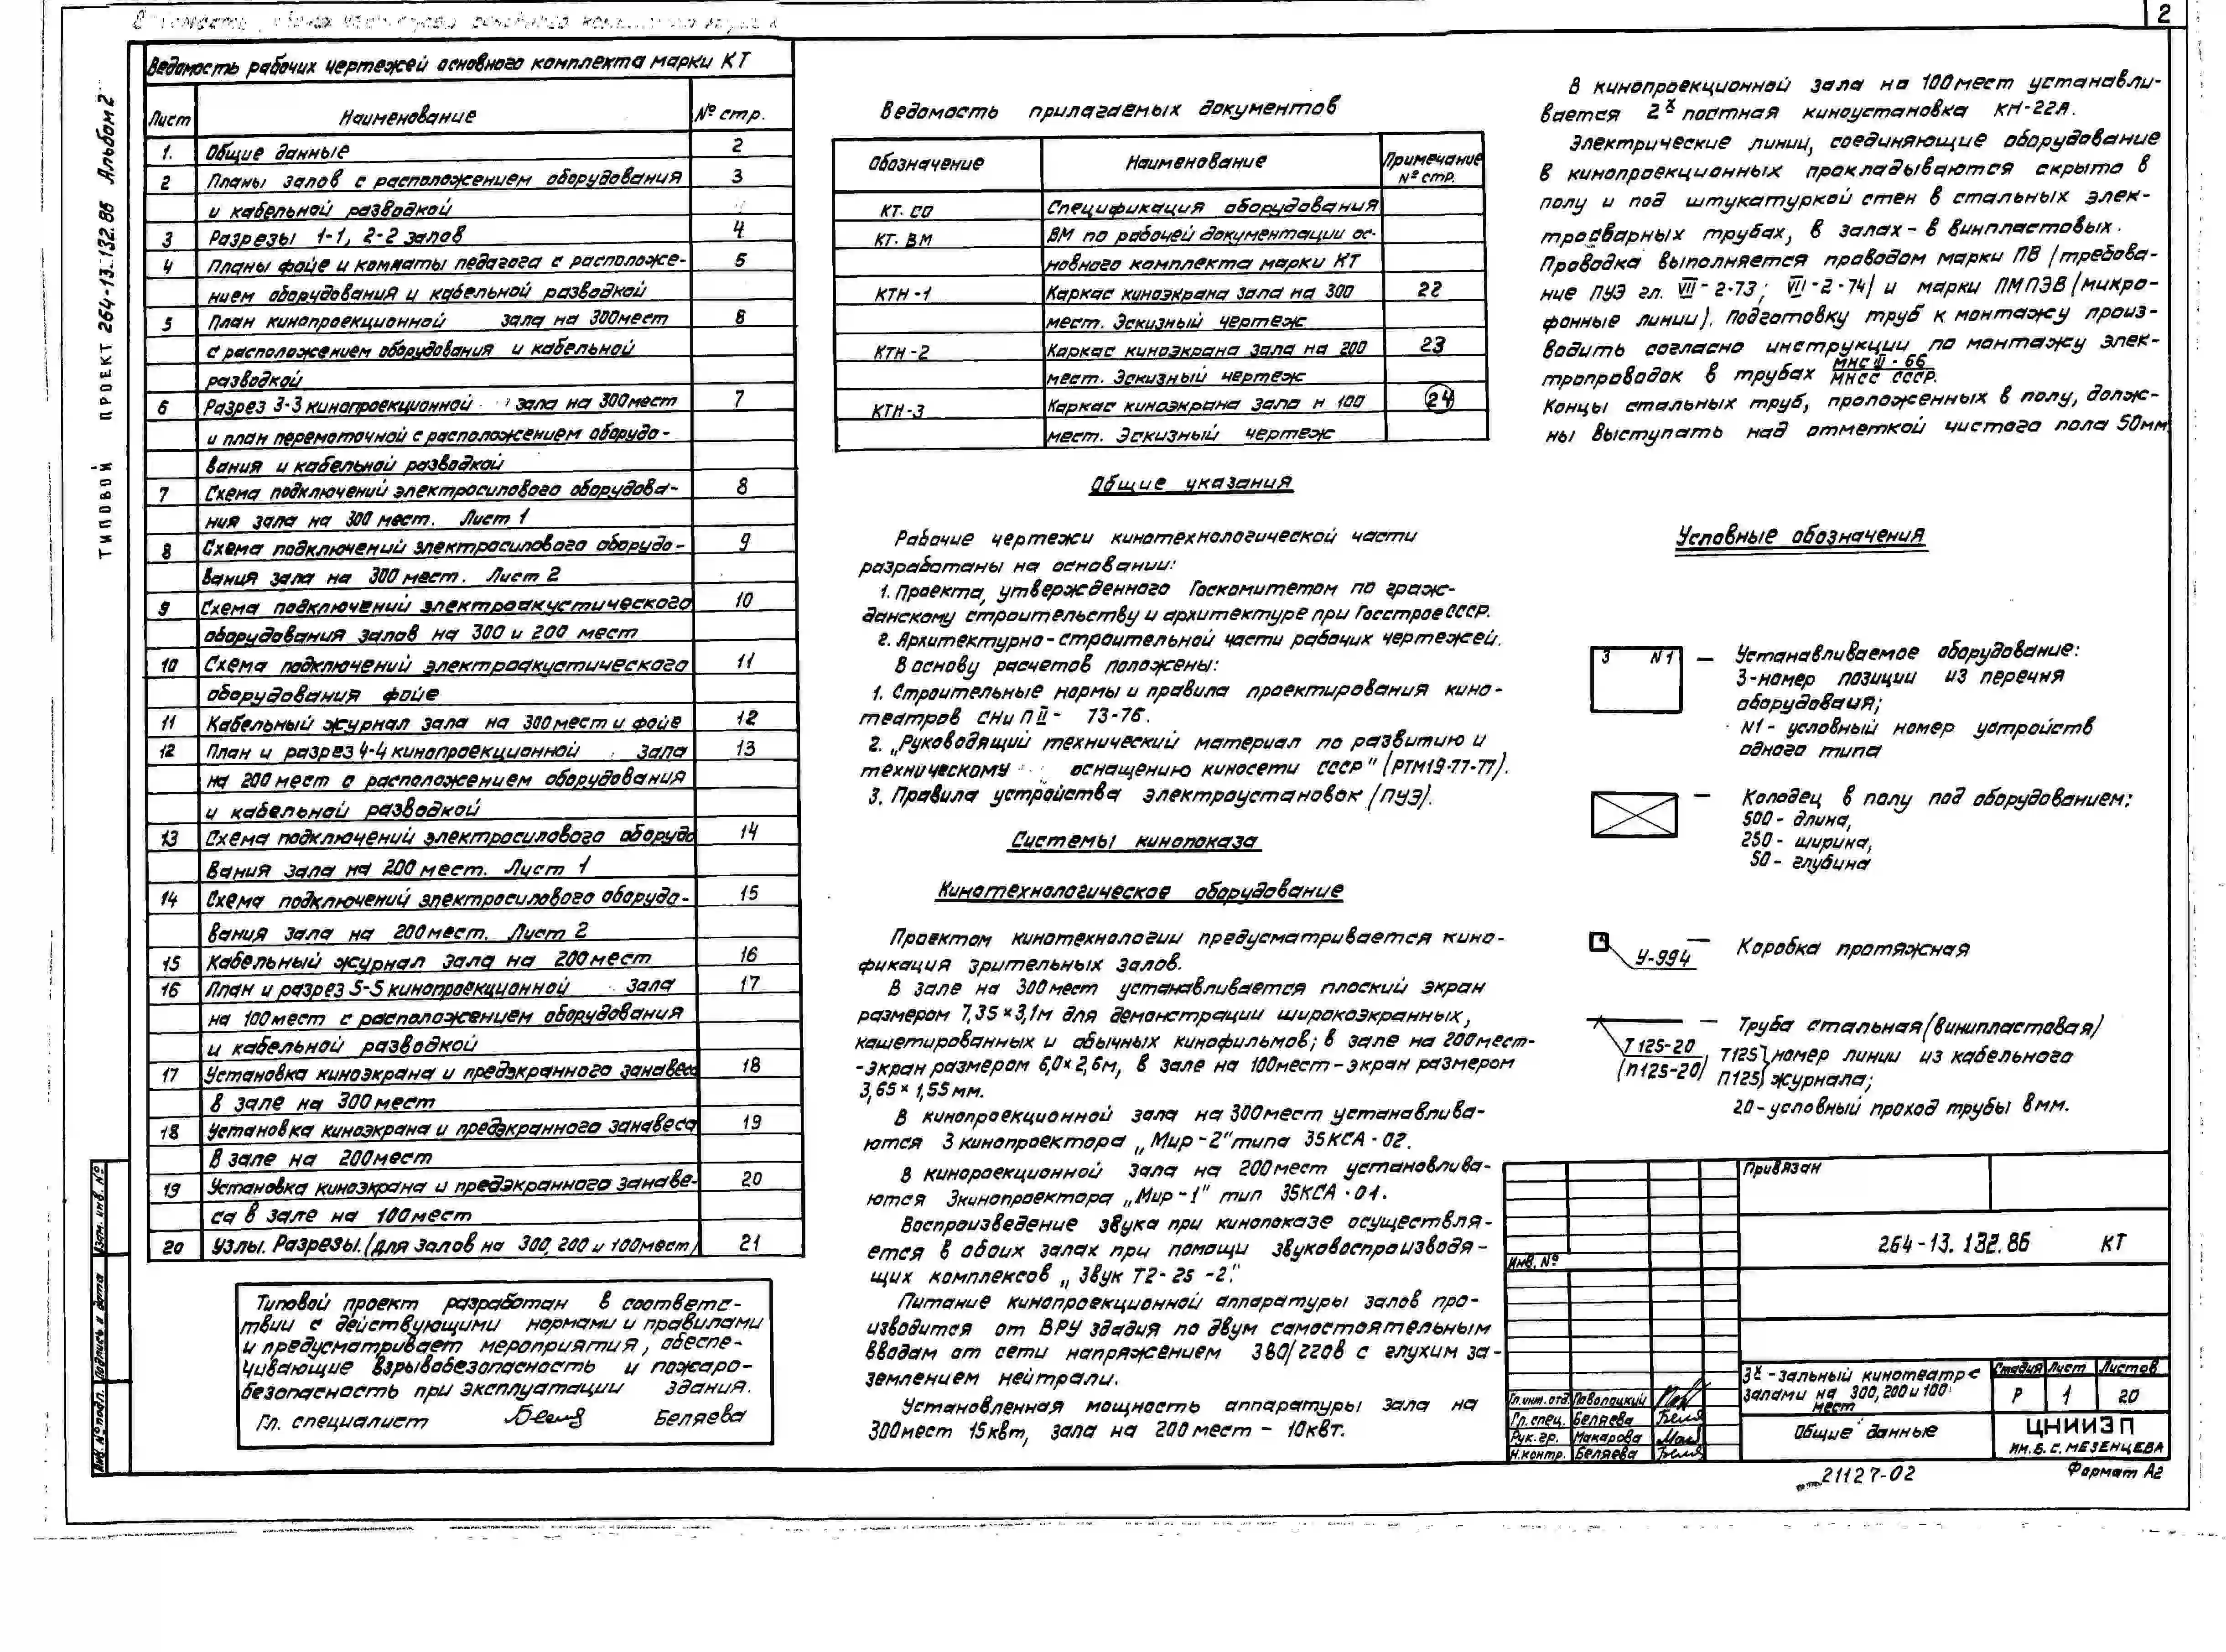 2
ТИПОВОЙ ПРОЕКТ 264-13.132.86 Альбом 2
Ведомость рабочих чертежей основного комплекта марки КТ
Лист Наименование № стр.
1. Общие данные 2
2 Планы залов с расположением оборудования 3
и кабельной разводкой
3 Разрезы 1-1, 2-2 залов 4
4 Планы фойе и комнаты педагога с расположе- 5
нием оборудования и кабельной разводкой
5 План кинопроекционной зала на 300 мест 6
с расположением оборудования и кабельной
разводкой
6 Разрез 3-3 кинопроекционной зала на 300 мест 7
и план перемоточной с расположением оборудо-
вания и кабельной разводкой
7 Схема подключений электросилового оборудова- 8
ния зала на 300 мест. Лист 1
8 Схема подключений электросилового оборудо- 9
вания зала на 300 мест. Лист 2
9 Схема подключений электроакустического 10
оборудования залов на 300 и 200 мест
10 Схема подключений электроакустического 11
оборудования фойе
11 Кабельный журнал зала на 300 мест и фойе 12
12 План и разрез 4-4 кинопроекционной зала 13
на 200 мест с расположением оборудования
и кабельной разводкой
13 Схема подключений электросилового оборудо 14
вания зала на 200 мест. Лист 1
14 Схема подключений электросилового оборудо- 15
вания зала на 200 мест. Лист 2
15 Кабельный журнал зала на 200 мест 16
16 План и разрез 5-5 кинопроекционной зала 17
на 100 мест с расположением оборудования
и кабельной разводкой
17 Установка киноэкрана и предэкранного занавеса 18
в зале на 300 мест
18 Установка киноэкрана и предэкранного занавеса 19
в зале на 200 мест
19 Установка киноэкрана и предэкранного занаве- 20
са в зале на 100 мест
20 Узлы. Разрезы. (для залов на 300, 200 и 100 мест) 21
Типовой проект разработан в соответс-
твии с действующими нормами и правилами
и предусматривает мероприятия, обеспе-
чивающие взрывобезопасность и пожаро-
безопасность при эксплуатации здания.
Гл. специалист Беляева
Взам. инв. №
Подпись и дата
Инв. № подл.
Ведомость прилагаемых документов
Обозначение Наименование Примечание № стр.
КТ. СО Спецификация оборудования
КТ. ВМ ВМ по рабочей документации ос-
новного комплекта марки КТ
КТН-1 Каркас киноэкрана зала на 300 22
мест. Эскизный чертеж
КТН-2 Каркас киноэкрана зала на 200 23
мест. Эскизный чертеж
КТН-3 Каркас киноэкрана зала н 100 24
мест. Эскизный чертеж
Общие указания
Рабочие чертежи кинотехнологической части
разработаны на основании:
1. Проекта, утвержденного Госкомитетом по граж-
данскому строительству и архитектуре при Госстрое СССР.
2. Архитектурно-строительной части рабочих чертежей.
В основу расчетов положены:
1. Строительные нормы и правила проектирования кино-
театров СНиП II- 73-76.
2. „Руководящий технический материал по развитию и
техническому оснащению киносети СССР" (РТМ19-77-77).
3. Правила устройства электроустановок (ПУЭ).
Системы кинопоказа
Кинотехнологическое оборудование
Проектом кинотехнологии предусматривается кино-
фикация зрительных залов.
В зале на 300 мест устанавливается плоский экран
размером 7,35×3,1м для демонстрации широкоэкранных,
кашетированных и обычных кинофильмов; в зале на 200 мест-
-экран размером 6,0×2,6м, в зале на 100 мест-экран размером
3,65×1,55 мм.
В кинопроекционной зала на 300 мест устанавлива-
ются 3 кинопроектора „Мир-2" типа 35КСА-02.
В кинороекционной зала на 200 мест установлива-
ются 3 кинопроектора „Мир-1" тип 35КСА-01.
Воспроизведение звука при кинопоказе осуществля-
ется в обоих залах при помощи звуковоспроизводя-
щих комплексов „Звук Т2-25-2".
Питание кинопроекционной аппаратуры залов про-
изводится от ВРУ здадия по двум самостоятельным
вводам от сети напряжением 380/220в с глухим за-
землением нейтрали.
Установленная мощность аппаратуры зала на
300 мест 15квт, зала на 200 мест - 10квт.
В кинопроекционной зала на 100 мест устанавли-
вается 2х постная киноустановка КН-22А.
Электрические линии, соединяющие оборудование
в кинопроекционных прокладываются скрыто в
полу и под штукатуркой стен в стальных элек-
тросварных трубах, в залах - в винпластовых.
Проводка выполняется проводом марки ПВ (требова-
ние ПУЭ гл. VII-2-73; VII-2-74) и марки ПМПЭВ (микро-
фонные линии). Подготовку труб к монтажу произ-
водить согласно инструкции по монтажу элек-
тропроводок в трубах МНС III-66 / МНСС СССР.
Концы стальных труб, проложенных в полу, долж-
ны выступать над отметкой чистого пола 50мм
Условные обозначения
3 N1 — Устанавливаемое оборудование:
3-номер позиции из перечня
оборудования;
N1- условный номер устройств
одного типа
— Колодец в полу под оборудованием:
500- длина,
250- ширина,
50- глубина
У-994 — Коробка протяжная
— Труба стальная (винипластовая)
Т125-20 Т125 } номер линии из кабельного
(П125-20) П125 } журнала;
20-условный проход трубы в мм.
Привязан
Инв. №
264-13.132.86 КТ
Гл. инж. отд. Поволоцкий
Гл. спец. Беляева
Рук. гр. Макарова
Н. контр. Беляева
3х-зальный кинотеатр с
залами на 300, 200 и 100
мест
Стадия Лист Листов
Р 1 20
Общие данные
ЦНИИЭП
ИМ. Б. С. МЕЗЕНЦЕВА
21127-02
Формат А2